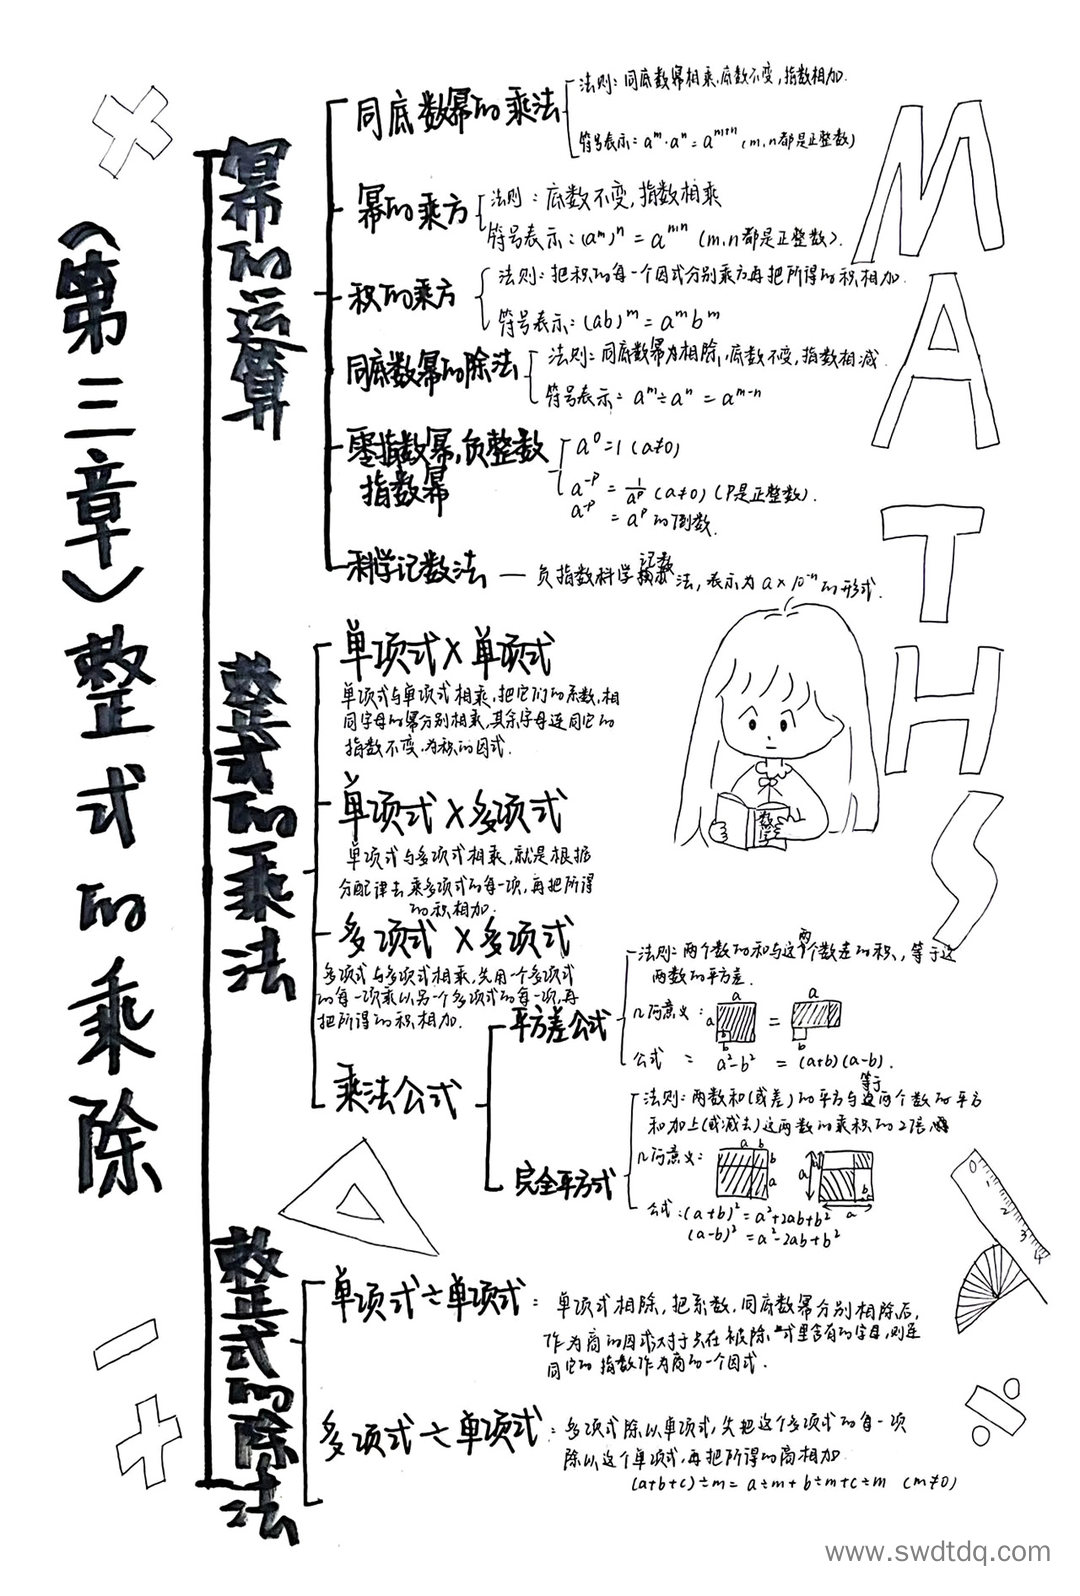 （第三章）整式的乘除
MATHS
幂的运算
同底数幂的乘法
法则：同底数幂相乘，底数不变，指数相加.
符号表示：a^m·a^n=a^{m+n}（m,n都是正整数）
幂的乘方
法则：底数不变，指数相乘
符号表示：(a^m)^n=a^{mn}（m,n都是正整数）.
积的乘方
法则：把积的每一个因式分别乘方再把所得的积相加.
符号表示：(ab)^m=a^m b^m
同底数幂的除法
法则：同底数幂为相除，底数不变，指数相减.
符号表示：a^m÷a^n=a^{m-n}
零指数幂,负整数
指数幂
a^0=1（a≠0）
a^{-p}=1/a^p（a≠0）（P是正整数）.
a^{-p}=a^p的倒数.
科学记数法
负指数科学记数法，表示为a×10^{-n}的形式.
整式的乘法
单项式×单项式
单项式与单项式相乘，把它们的系数，相
同字母的幂分别相乘，其余字母连同它的
指数不变，为积的因式.
单项式×多项式
单项式与多项式相乘，就是根据
分配律去乘多项式的每一项，再把所得
的积相加.
多项式×多项式
多项式与多项式相乘，先用一个多项式
的每一项乘以另一个多项式的每一项，再
把所得的积相加.
数学
乘法公式
平方差公式
法则：两个数的和与这两个数差的积，等于这
两数的平方差.
几何意义：
a
a
b
=
a
b
公式 = a²-b² =(a+b)(a-b).
完全平方式
法则：两数和(或差)的平方等于这两个数的平方
和加上(或减去)这两数的乘积的2倍
几何意义：
a b
b
a
a
b
a
公式：(a+b)²=a²+2ab+b²
(a-b)²=a²-2ab+b²
0 1 2 3 4
整式的除法
单项式÷单项式：
单项式相除，把系数，同底数幂分别相除后，
作为商的因式对于只在被除式里含有的字母，则连
同它的指数作为商的一个因式.
多项式÷单项式：
多项式除以单项式，先把这个多项式的每一项
除以这个单项式，再把所得的商相加
(a+b+c)÷m=a÷m+b÷m+c÷m （m≠0）
www.swdtdq.com